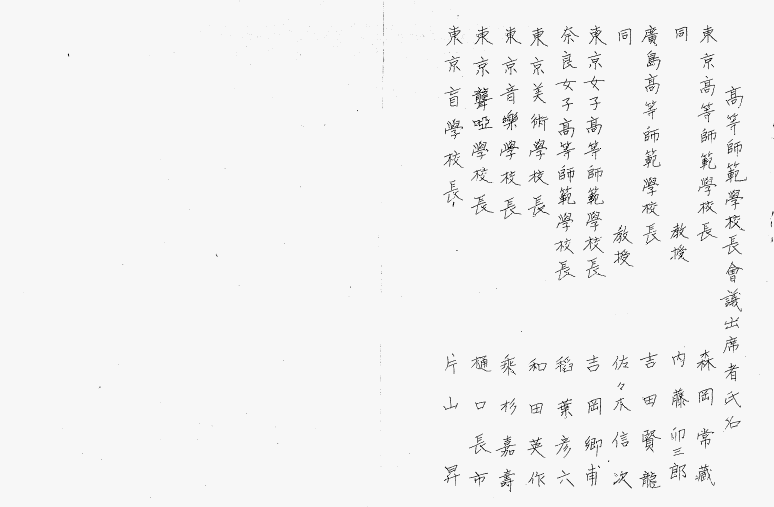 高等師範學校長會議出席者氏名
東京高等師範學校長 森岡常藏
同 教授 内藤卯三郎
廣島高等師範學校長 吉田賢龍
同 教授 佐々木信次
東京女子高等師範學校長 吉岡郷甫
奈良女子高等師範學校長 稻葉彦六
東京美術學校長 和田英作
東京音樂學校長 乘杉嘉壽
東京聾啞學校長 樋口長市
東京盲學校長 片山昇